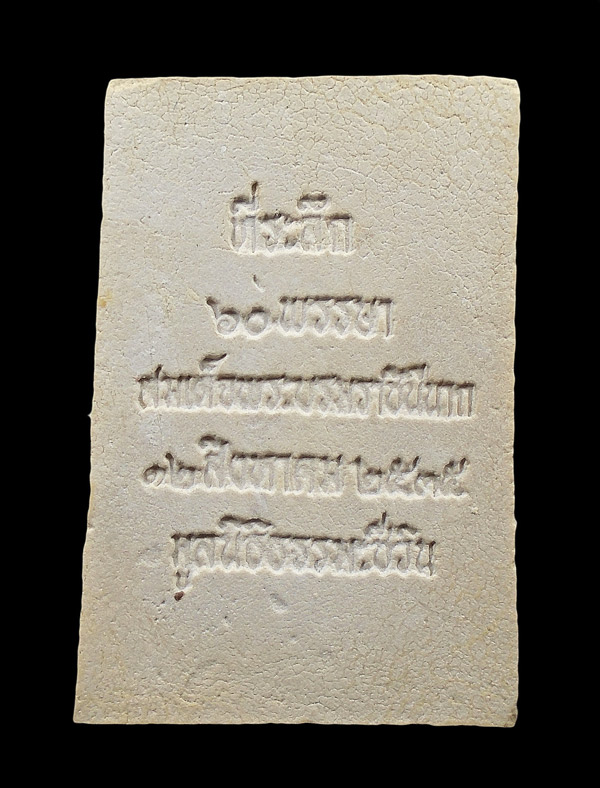 ที่ระลึก
๖๐ พรรษา
สมเด็จพระบรมราชินีนาถ
๑๒ สิงหาคม ๒๕๓๕
มูลนิธิธรรมะชีวิน